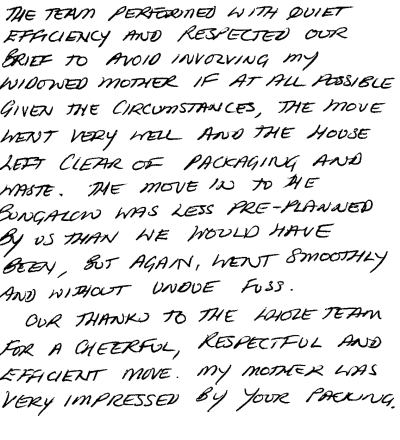 THE TEAM PERFORMED WITH QUIET
EFFICIENCY AND RESPECTED OUR
BRIEF TO AVOID INVOLVING MY
WIDOWED MOTHER IF AT ALL POSSIBLE
GIVEN THE CIRCUMSTANCES, THE MOVE
WENT VERY WELL AND THE HOUSE
LEFT CLEAR OF PACKAGING AND
WASTE. THE MOVE IN TO THE
BUNGALOW WAS LESS PRE-PLANNED
BY US THAN WE WOULD HAVE
BEEN, BUT AGAIN, WENT SMOOTHLY
AND WITHOUT UNDUE FUSS.
OUR THANKS TO THE WHOLE TEAM
FOR A CHEERFUL, RESPECTFUL AND
EFFICIENT MOVE. MY MOTHER WAS
VERY IMPRESSED BY YOUR PACKING.